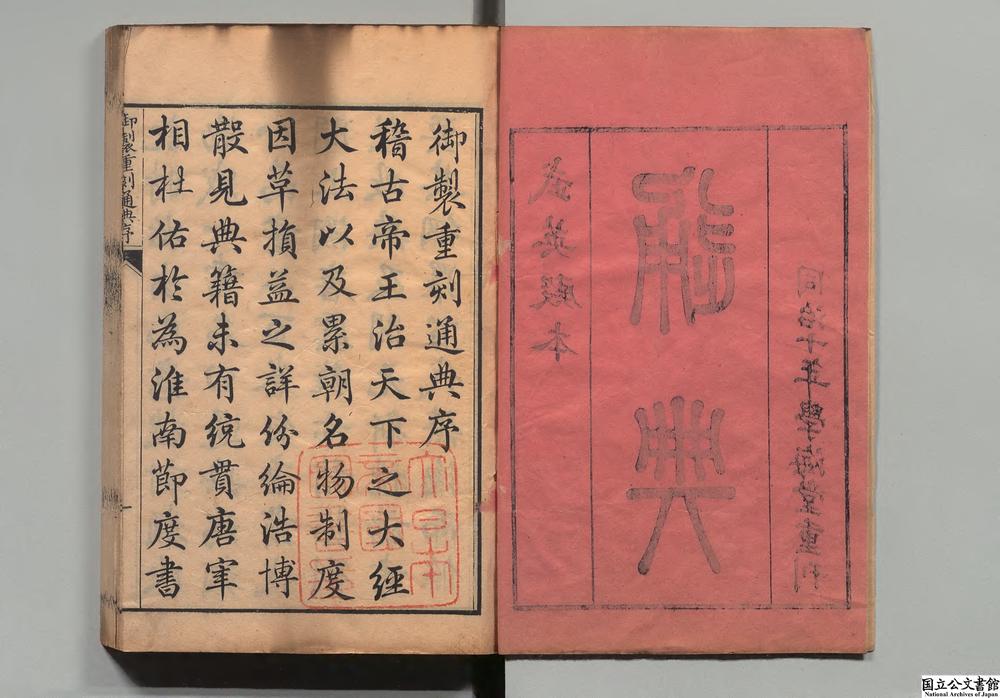 同治十年學海堂重刊
通典
武英殿本
御製重刻通典序
稽古帝王治天下之大經
大法以及累朝名物制度
因革損益之詳份綸浩博
散見典籍未有統貫唐宰
相杜佑於為淮南節度書
御製重刻通典序
一
国立公文書館
National Archives of Japan